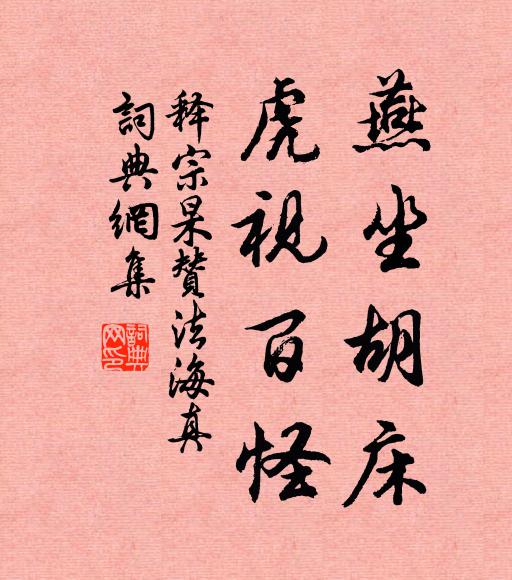 燕坐胡床
虎视百怪
释宗杲赞法海真
詞典網集
詞典網印